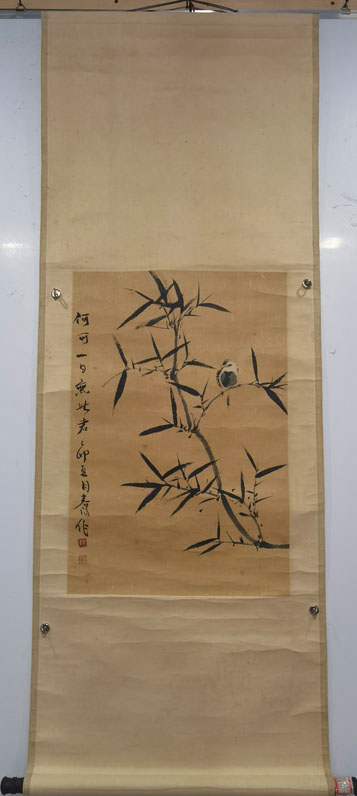 何可一日無此君乙卯五月